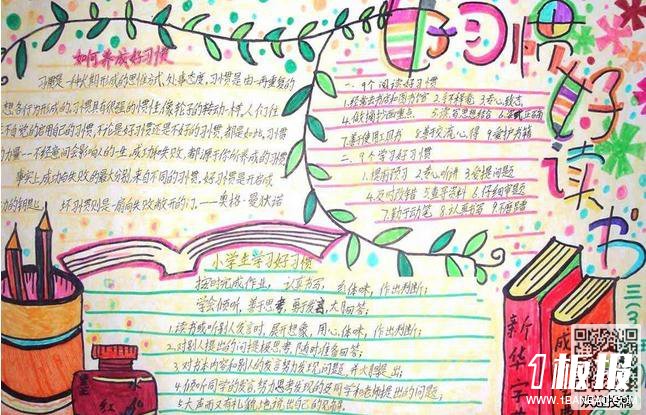 好习惯
好读书
如何养成好习惯
习惯是一种长期形成的思维方式、处事态度,习惯是由一再重复的
想和行为形成的,习惯具有很强的惯性,像轮子的转动一样,人们往
不自觉的启用自己的习惯,不论是好习惯还是不好的习惯,都是如此,习惯
力量--不经意间会影响人的一生,成功和失败,都源于你所养成的习惯
事实上,成功与失败的最大分别,来自不同的习惯,好习惯是开启成
功的钥匙, 坏习惯则是一扇向失败敞开的门。--奥格·曼狄诺
一、9个阅读好习惯
1.经常去书店和图书馆 2.手不释卷 3.专心致志
4.做好摘抄画重点 5.读与思想结合 6. 正确
7.善于使用工具书 8.善于交流心得 9.爱护书籍
二、9个学习好习惯
1.提前预习 2.专心听讲 3.爱提问题
4.及时改错 5.查寻资料 6.仔细审题
7.勤于动笔 8.认真书写
小学生学习好习惯
按时完成作业, 认真书写, 体味,作出判断;
学会倾听,善于思考,勇于发言,大胆回答;
1.读书或听别人发言时,展开想象,用心体味,作出判断;
2.对别人提出的问题积极思考,随时准备回答;
3.对书本内容和别人的发言努力发现问题,并大胆提出;
4.倾听同学的发言,努力思考发现的适同学和老师提出的问题;
5.大声而又有礼貌地说出自己的见解。
新华字
成
三(3
红
水
1板报
www.1BANBAO.COM